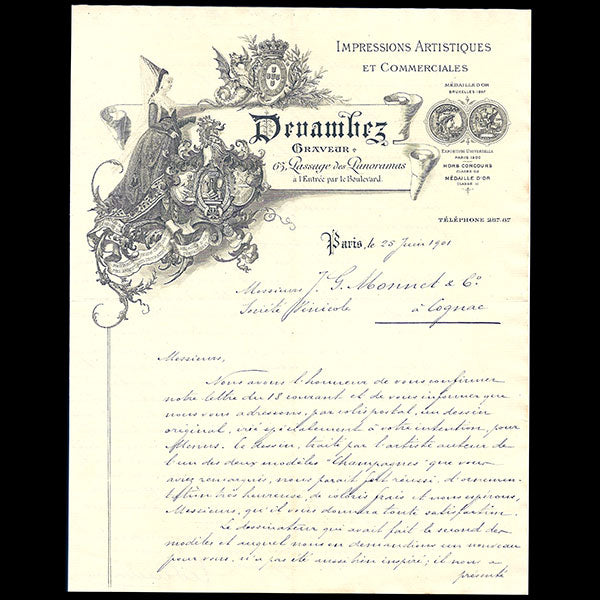 IMPRESSIONS ARTISTIQUES
ET COMMERCIALES
MÉDAILLE D'OR
BRUXELLES 1897
Devambez
GRAVEUR
63, Passage des Panoramas
à l'Entrée par le Boulevard.
EXPOSITION UNIVERSELLE
PARIS 1900
HORS CONCOURS
MÉDAILLE D'OR
TÉLÉPHONE 267-67
Paris, le 25 Juin 1901
Messieurs J. G. Monnet & Co.
Société Vinicole à Cognac
Messieurs,
Nous avons l'honneur de vous confirmer
notre lettre du 18 courant et de vous informer que
nous vous adressons, par colis postal, un dessin
original, créé spécialement à votre intention, pour
Menus. Ce dessin, traité par l'artiste auteur de
l'un des deux modèles "Champagnes" que vous
aviez remarqués, nous paraît fort réussi, d'ornemen-
tation très heureuse, de coloris frais et nous espérons,
Messieurs, qu'il vous donnera toute satisfaction.
Le dessinateur qui avait fait le second des
modèles et auquel nous en demandions un nouveau
pour vous, n'a pas été aussi bien inspiré; il nous a
présenté